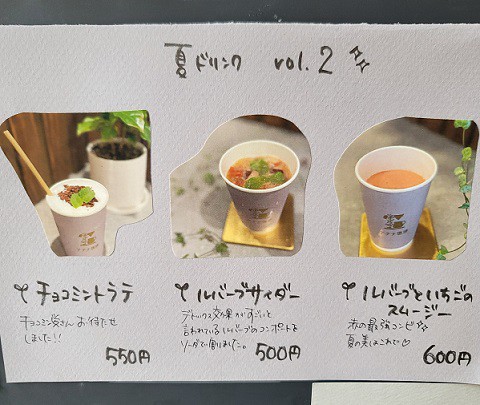 夏ドリンク vol.2
チョコミントラテ
チョコミン党さんお待たせ
しました!!
550円
ルバーブサイダー
デトックス効果がすごいと
言われているルバーブのコンポートを
ソーダで割りました。
500円
ルバーブといちごの
スムージー
赤の最強コンビ
夏の美はこれで♡
600円